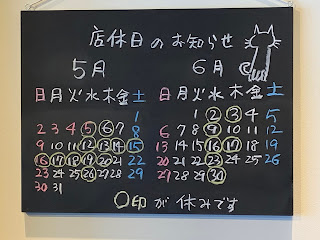 店休日のお知らせ
5月 6月
日月火水木金土 日月火水木金土
1 1 2 3 4 5
2 3 4 5 6 7 8 6 7 8 9 10 11 12
9 10 11 12 13 14 15 13 14 15 16 17 18 19
16 17 18 19 20 21 22 20 21 22 23 24 25 26
23 24 25 26 27 28 29 27 28 29 30
30 31
○印が休みです